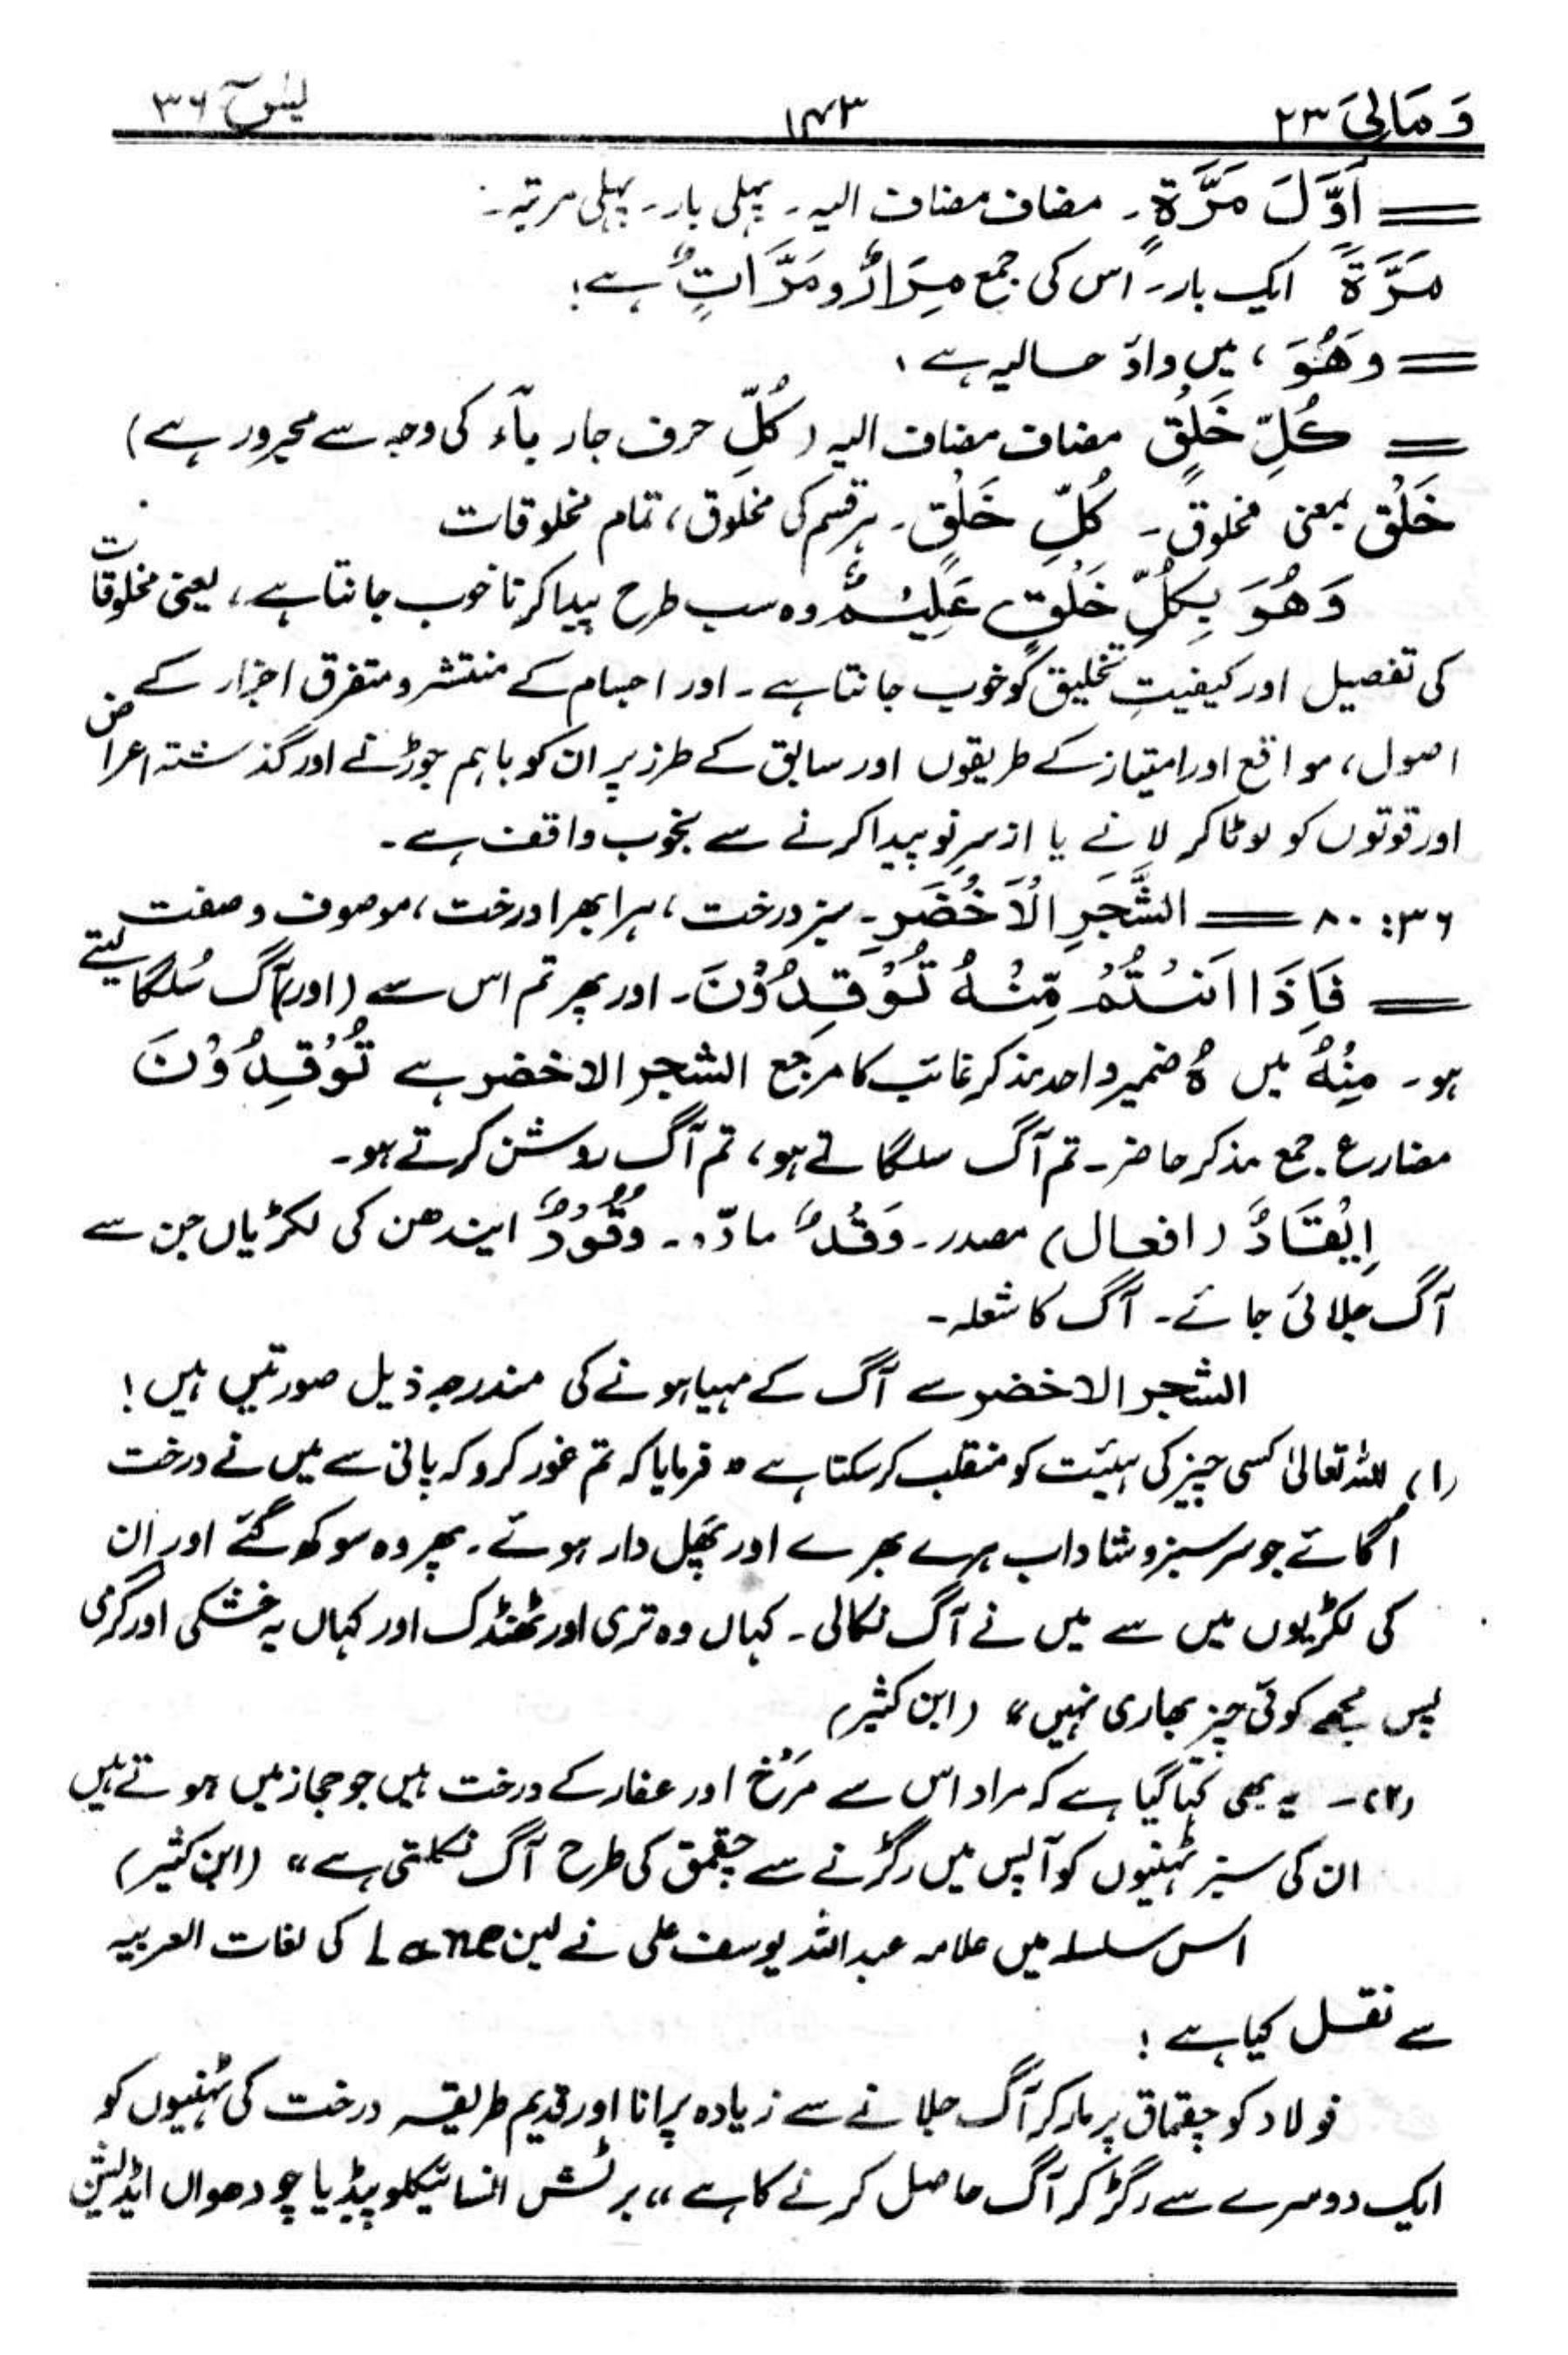 وَمَالِیَ ۲۳ ۱۴۳ یٰسٓ ۳۶
= اَوَّلَ مَرَّۃٍ۔ مضاف مضاف الیہ۔ پہلی بار۔ پہلی مرتبہ۔
مَرَّۃً ایک بار۔ اس کی جمع مِرَارٌ و مَرَّاتٌ ہے؛
= وَهُوَ ، میں واؤ حالیہ ہے ،
= کُلِّ خَلْقٍ مضاف مضاف الیہ (کُلِّ حرف جار بآء کی وجہ سے مجرور ہے)
خَلْق بمعنی مخلوق۔ کُلِّ خَلْقٍ۔ ہر قسم کی مخلوق، تمام مخلوقات
وَهُوَ بِکُلِّ خَلْقٍ عَلِیْمٌ وہ سب طرح پیدا کرنا خوب جانتا ہے، یعنی مخلوقات
کی تفصیل اور کیفیتِ تخلیق کو خوب جانتا ہے۔ اور اجسام کے منتشر و متفرق اجزار کے
اصول، مواقع اور امتیاز کے طریقوں اور سابق کے طرز پر ان کو باہم جوڑنے اور گذشتہ اعراض
اور قوتوں کو لوٹا کر لانے یا ازسرِنو پیدا کرنے سے بخوب واقف ہے۔
۳۶: ۸۰ = الشَّجَرِ الْاَخْضَرِ۔ سبز درخت، ہرا بھرا درخت، موصوف و صفت
= فَاِذَا اَنْتُمْ مِّنْهُ تُوْقِدُوْنَ۔ اور پھر تم اس سے (اور) آگ سُلگا لیتے
ہو۔ مِنْهُ میں ہُ ضمیر واحد مذکر غائب کا مرجع الشجر الاخضر ہے تُوْقِدُوْنَ
مضارع جمع مذکر حاضر۔ تم آگ سلگاتے ہو، تم آگ روشن کرتے ہو۔
اِیْقَادٌ (افعال) مصدر۔ وَقْدٌ مادّہ۔ وُقُوْدٌ ایندھن کی لکڑیاں جن سے
آگ جلائی جائے۔ آگ کا شعلہ۔
الشجر الاخضر سے آگ کے مہیا ہونے کی مندرجہ ذیل صورتیں ہیں!
(۱) اللہ تعالیٰ کسی چیز کی ہیئت کو منقلب کر سکتا ہے " فرمایا کہ تم غور کرو کہ پانی سے میں نے درخت
اُگائے جو سرسبز و شاداب ہرے بھرے اور پھل دار ہوئے۔ پھر وہ سوکھ گئے اور ان
کی لکڑیوں میں سے میں نے آگ نکالی۔ کہاں وہ تری اور ٹھنڈک اور کہاں یہ خشکی اور گرمی
پس مجھے کوئی چیز بھاری نہیں" (ابن کثیر)
(۲)۔ یہ بھی کہا گیا ہے کہ مراد اس سے مَرْخ اور عفار کے درخت ہیں جو حجاز میں ہوتے ہیں
ان کی سبز ٹہنیوں کو آپس میں رگڑنے سے چقمق کی طرح آگ نکلتی ہے" (ابن کثیر)
اس سلسلہ میں علامہ عبداللہ یوسف علی نے لین Lane کی لغات العربیہ
سے نقل کیا ہے!
فولاد کو چقماق پر مار کر آگ جلانے سے زیادہ پرانا اور قدیم طریقہ درخت کی ٹہنیوں کو
ایک دوسرے سے رگڑ کر آگ حاصل کرنے کا ہے" برٹش انسائیکلوپیڈیا چودھواں ایڈیشن